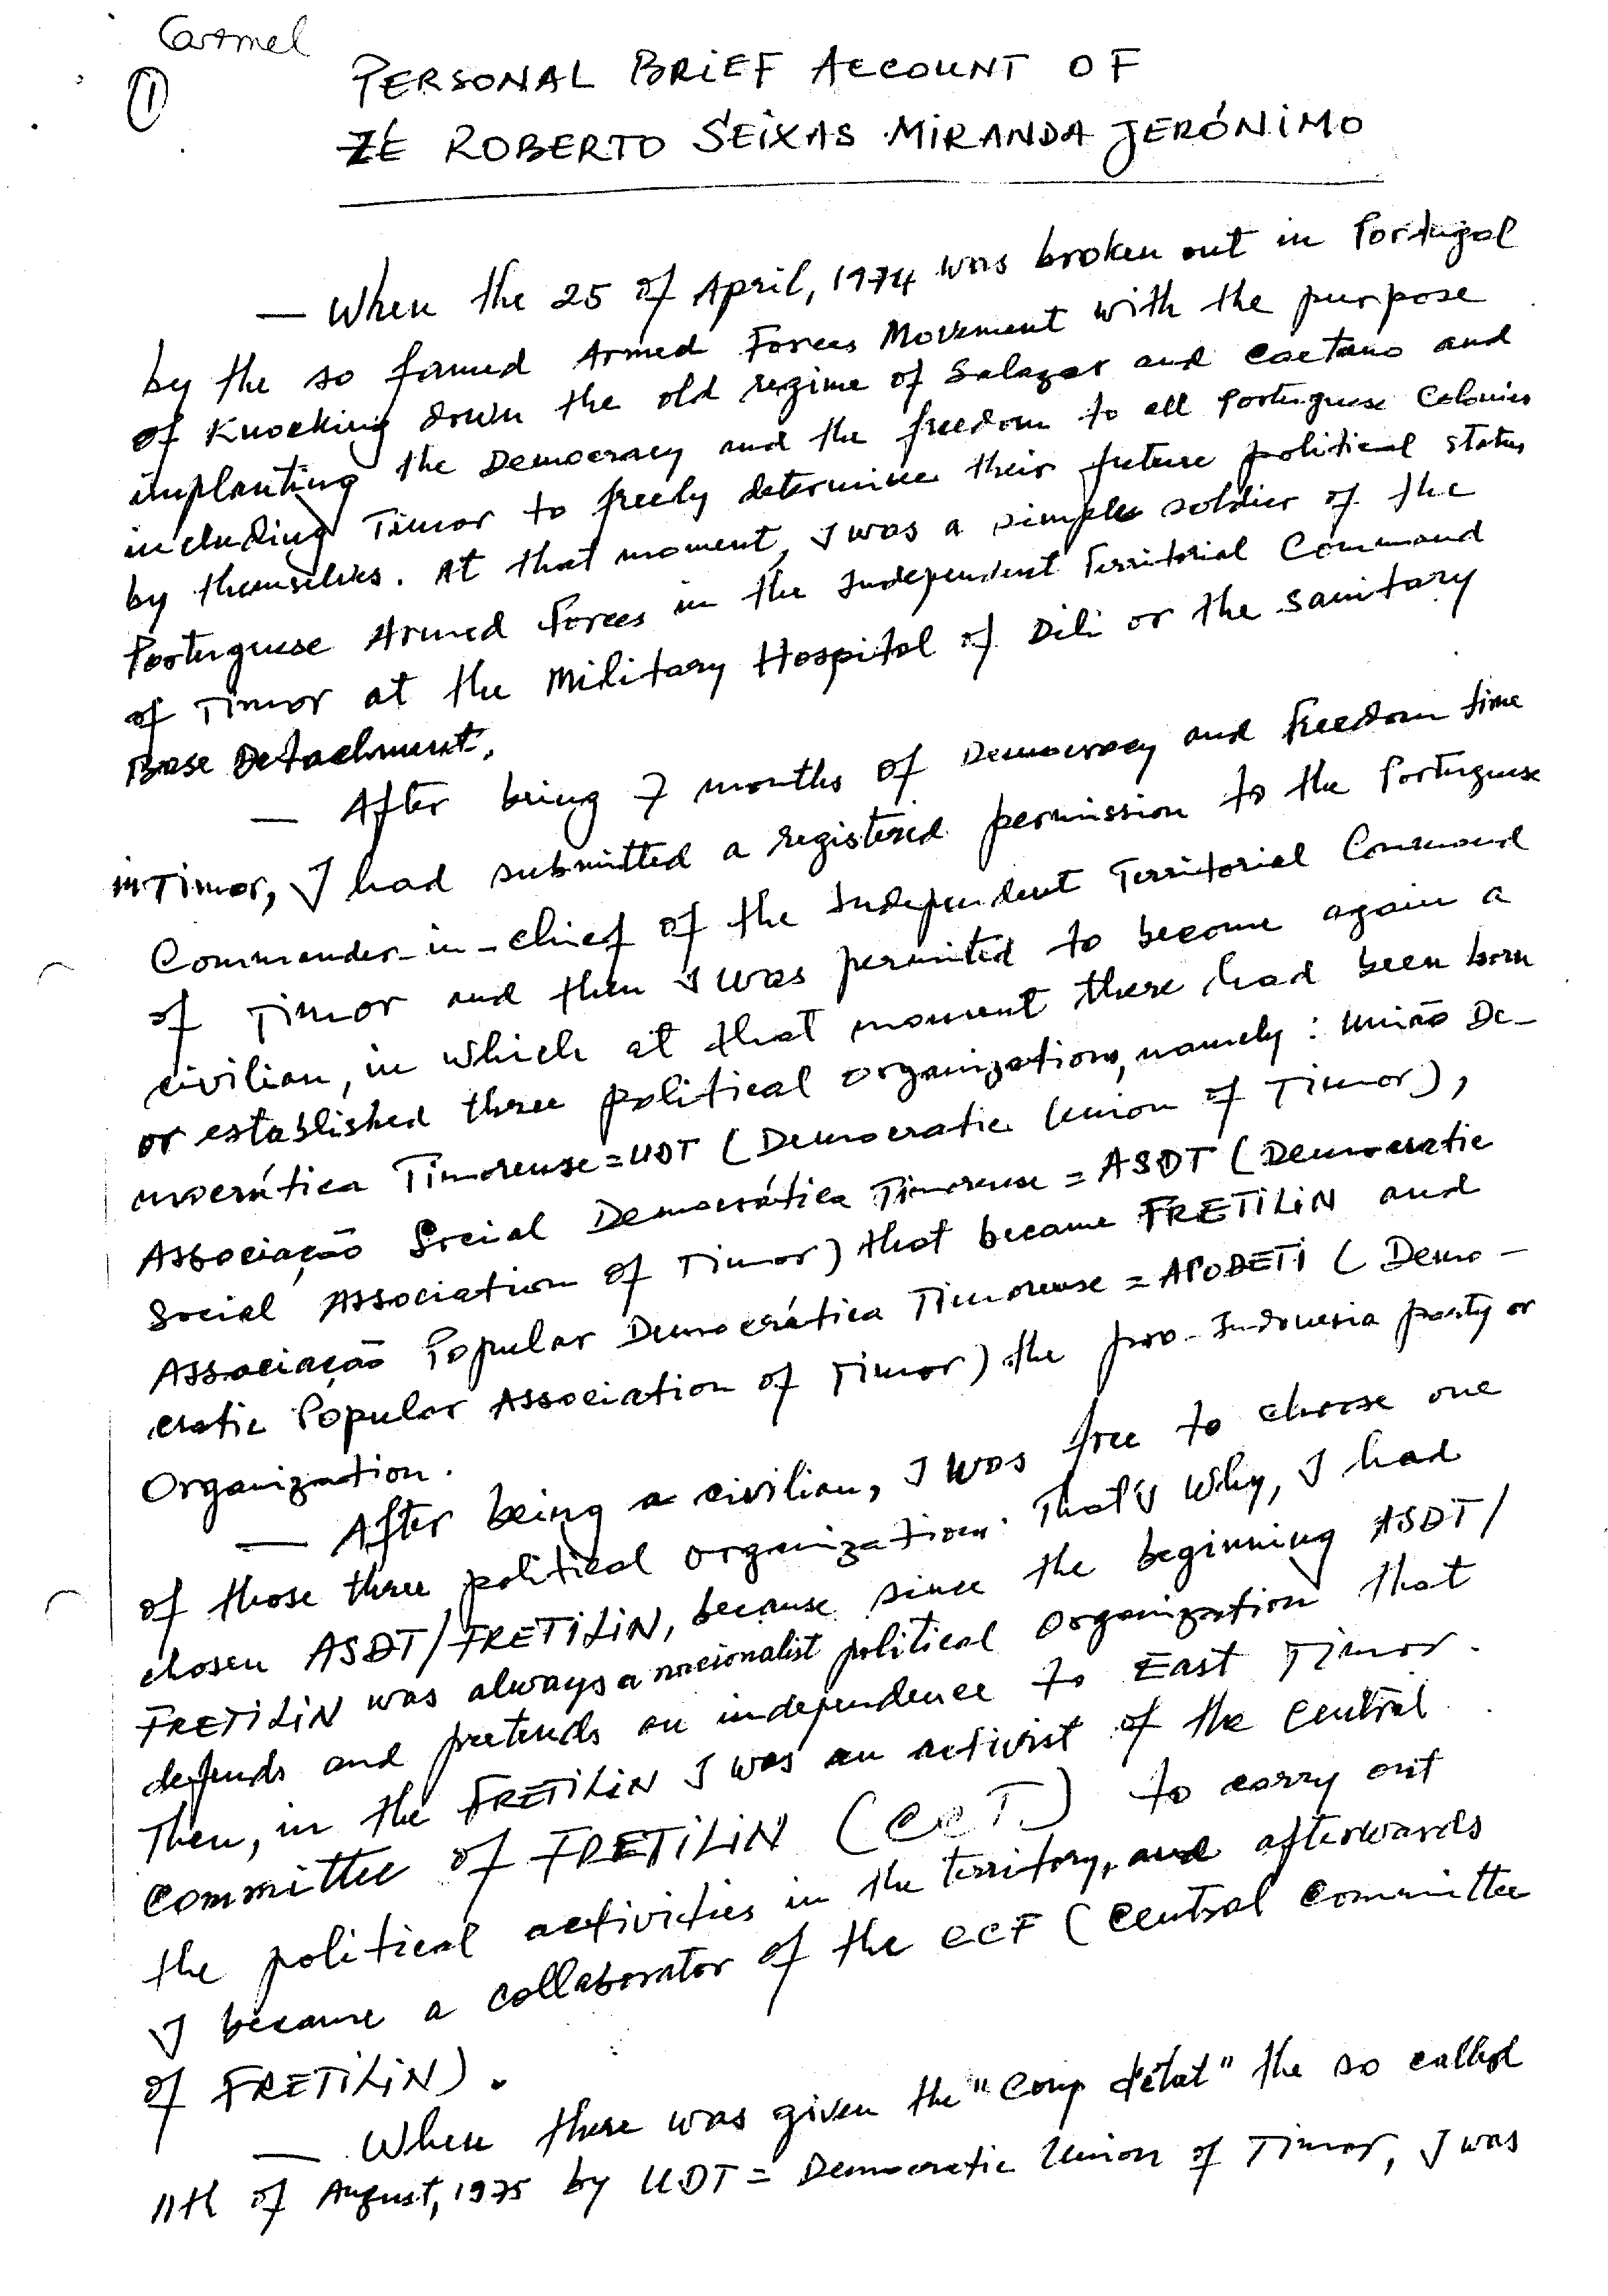 Carmel
1
PERSONAL BRIEF ACCOUNT OF
ZÉ ROBERTO SEIXAS MIRANDA JERÓNIMO
— When the 25 of April, 1974 was broken out in Portugal
by the so famed Armed Forces Movement with the purpose
of Knocking down the old regime of Salazar and Caetano and
implanting the Democracy and the freedom to all Portuguese Colonies
including Timor to freely determine their future political status
by themselves. At that moment, I was a simple soldier of the
Portuguese Armed Forces in the Independent Territorial Command
of Timor at the Military Hospital of Dili or the sanitary
Base Detachment.
— After being 7 months of Democracy and Freedom time
in Timor, I had submitted a registered permission to the Portuguese
Commander-in-chief of the Independent Territorial Command
of Timor and then I was permited to become again a
civilian, in which at that moment there had been born
or established three political organizations, namely: União De-
mocrática Timorense = UDT (Democratic Union of Timor),
Associação Social Democrática Timorense = ASDT (Democratic
Social Association of Timor) that became FRETILIN and
Associação Popular Democrática Timorense = APODETI (Demo-
cratic Popular Association of Timor) the pro-Indonesia party or
Organization.
— After being a civilian, I was free to choose one
of those three political organization. That's why, I had
chosen ASDT/FRETILIN, because since the beginning ASDT/
FRETILIN was always a nacionalist political organization that
defends and pretends an independence to East Timor.
Then, in the FRETILIN I was an activist of the Central
Committee of FRETILIN (CCT) to carry out
the political activities in the territory, and afterwards
I became a collaborator of the CCF (Central Committee
of FRETILIN).
— When there was given the "Coup d'état" the so called
11th of August, 1975 by UDT = Democratic Union of Timor, I was